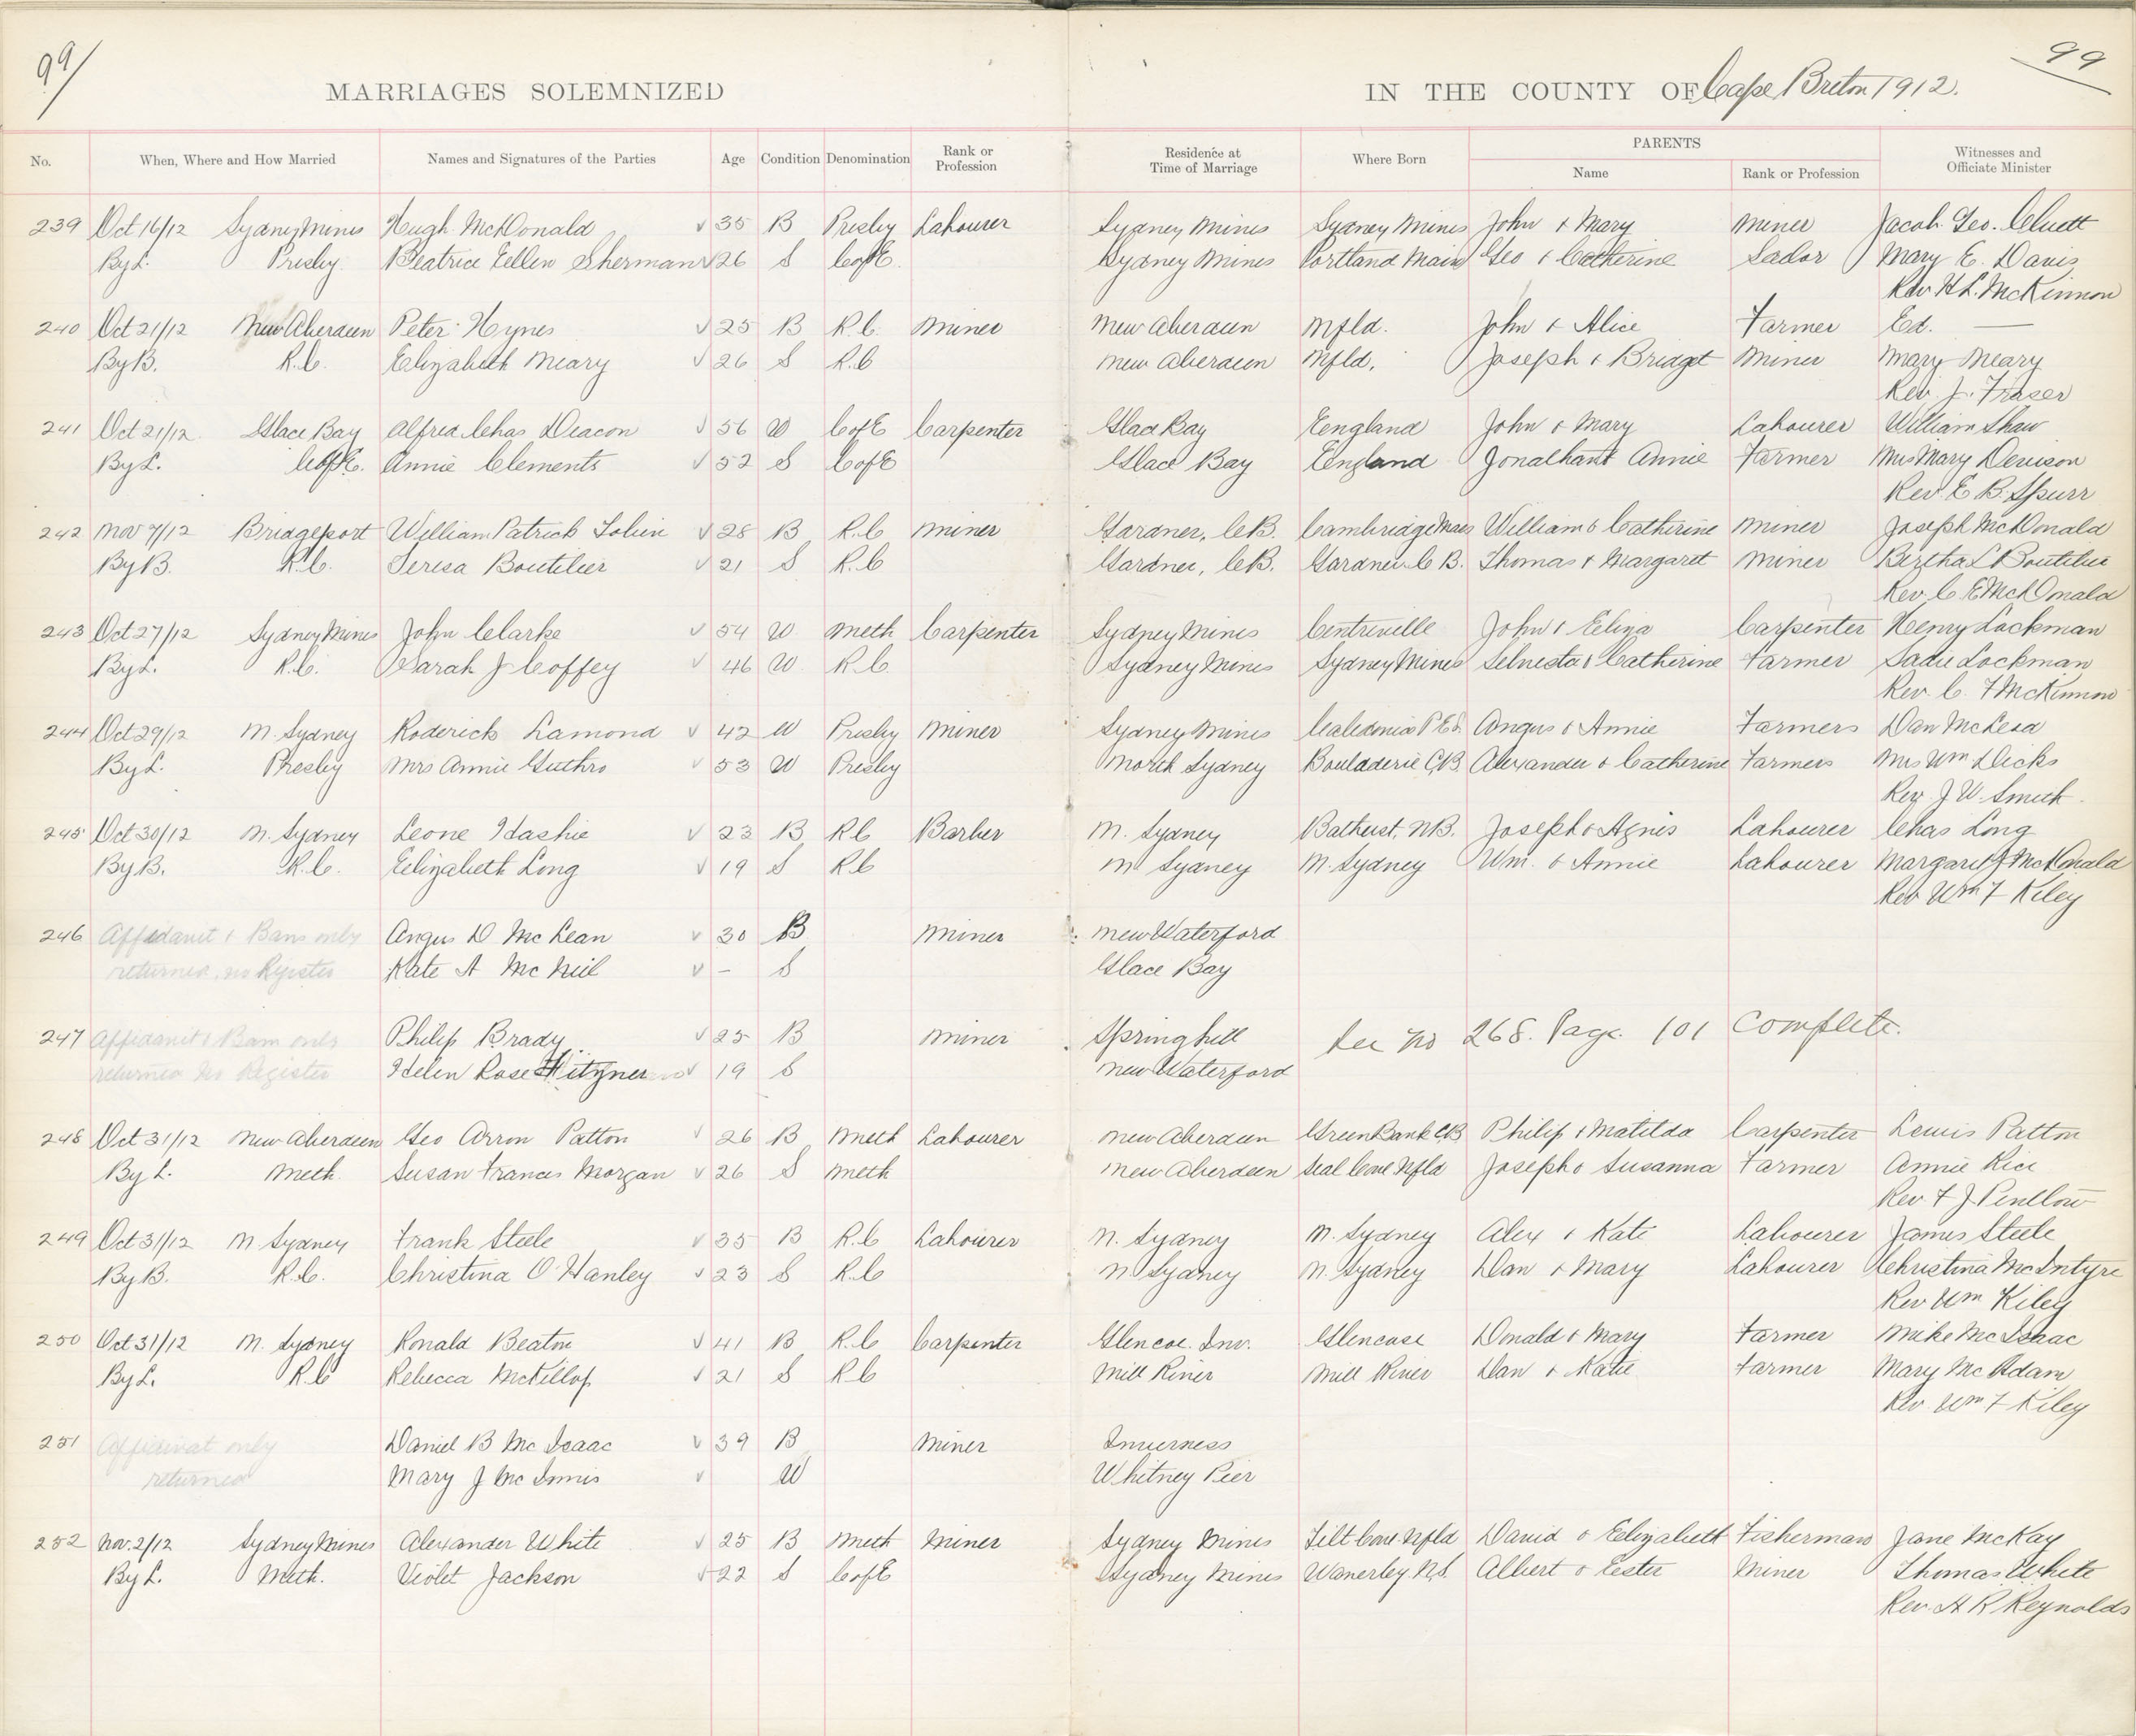 99/ 99
MARRIAGES SOLEMNIZED IN THE COUNTY OF Cape Breton 1912.
No. When, Where and How Married Names and Signatures of the Parties Age Condition Denomination Rank or Profession Residence at Time of Marriage Where Born PARENTS Name Rank or Profession Witnesses and Officiate Minister
239 Oct 16/12 Sydney Mines Hugh McDonald √ 35 B Presby Labourer Sydney Mines Sydney Mines John & Mary Miner Jacob Geo. Cluett
By L. Presby. Beatrice Ellen Sherman √ 26 S C of E. Sydney Mines Portland Main Geo & Catherine Mary E. Davis
Rev H L. McKinnon
240 Oct 21/12 New Aberdeen Peter Hynes √ 25 B R.C. Miner New Aberdeen Nfld. John & Alice Farmer Ed. —
By B. R.C. Elizabeth Neary √ 26 S R.C New Aberdeen Nfld. Joseph & Bridget Miner Mary Neary
Rev. J. Fraser
241 Oct 21/12 Glace Bay Alfred Chas Deacon √ 56 W C of E Carpenter Glace Bay England John & Mary Labourer William Shaw
By L. C of E. Annie Clements √ 52 S C of E Glace Bay England Jonathan & Annie Farmer Mrs Mary Denison
Rev E B. Spurr
242 Nov 7/12 Bridgeport William Patrick Tobin √ 28 B R.C Miner Gardner, C.B. Cambridge Mass William & Catherine Miner Joseph McDonald
By B. R.C. Teresa Boutilier √ 21 S R.C Gardner, C.B. Gardner C B. Thomas & Margaret Miner Bertha L Boutilier
Rev. C. F McDonald
243 Oct 27/12 Sydney Mines John Clarke √ 54 W Meth Carpenter Sydney Mines Centreville John & Eliza Carpenter Henry Lockman
By L. R.C. Sarah J Coffey √ 46 W R.C. Sydney Mines Sydney Mines & Catherine Farmer Sadie Lockman
Rev. C. F McKinnon
244 Oct 29/12 N. Sydney Roderick Lamond √ 42 W Presby Miner Sydney Mines Caledonia P E I. Angus & Annie Farmers Dan McLeod
By L. Presby Mrs Annie Guthro √ 53 W Presby North Sydney Bouladerie C.B. Alexander & Catherine Farmers Mrs Wm Dicks
Rev J W. Smith.
245 Oct 30/12 N. Sydney Leone Hashie √ 23 B R C Barber N. Sydney Bathurst, N.B. Joseph & Agnes Labourer Chas Long
By B. R.C. Elizabeth Long √ 19 S R C N Sydney N. Sydney Wm. & Annie Labourer Margaret J McDonald
Rev Wm F Kiley
246 Affidavit & Bans only Angus D McLean √ 30 B Miner New Waterford
returned, no Register Kate A McNeil √ – S Glace Bay
247 Affidavit & Bans only Philip Brady √ 25 B Miner Springhill See No 268. Page. 101 Complete.
returned No Register Helen Rose Hitzner √ 19 S New Waterford
248 Oct 31/12 New Aberdeen Geo Arron Patton √ 26 B Meth Labourer New Aberdeen Green Bank C.B Philip & Matilda Carpenter Lewis Patton
By L. Meth. Susan Frances Morgan √ 26 S Meth New Aberdeen Seal Cove Nfld Joseph & Susanna Farmer Annie Rice
Rev F J. Pentlow
249 Oct 31/12 N Sydney Frank Steele √ 35 B R.C Labourer N. Sydney N. Sydney Alex & Kate Labourer James Steele
By B. R.C. Christina O'Hanley √ 23 S R.C N Sydney N. Sydney Dan & Mary Labourer Christina McIntyre
Rev Wm Kiley
250 Oct 31/12 N. Sydney Ronald Beaton √ 41 B R.C Carpenter Glencoe. Inv. Glencose Donald & Mary Farmer Mike McIsaac
By L. R C Rebecca McKillop √ 21 S R C Mill River Mill River Dan & Katie Farmer Mary McAdam
Rev. Wm F Kiley
251 Affidavat only Daniel B McIsaac √ 39 B Miner Inverness
returned Mary J McInnis √ W Whitney Pier
252 Nov. 2/12 Sydney Mines Alexander White √ 25 B Meth Miner Sydney Mines Tilt Cove Nfld David & Elizabeth Fisherman Jane McKay
By L. Meth. Violet Jackson √ 22 S C of E Sydney Mines Waverley N.S. Albert & Ester Miner Thomas White
Rev. H R Reynolds